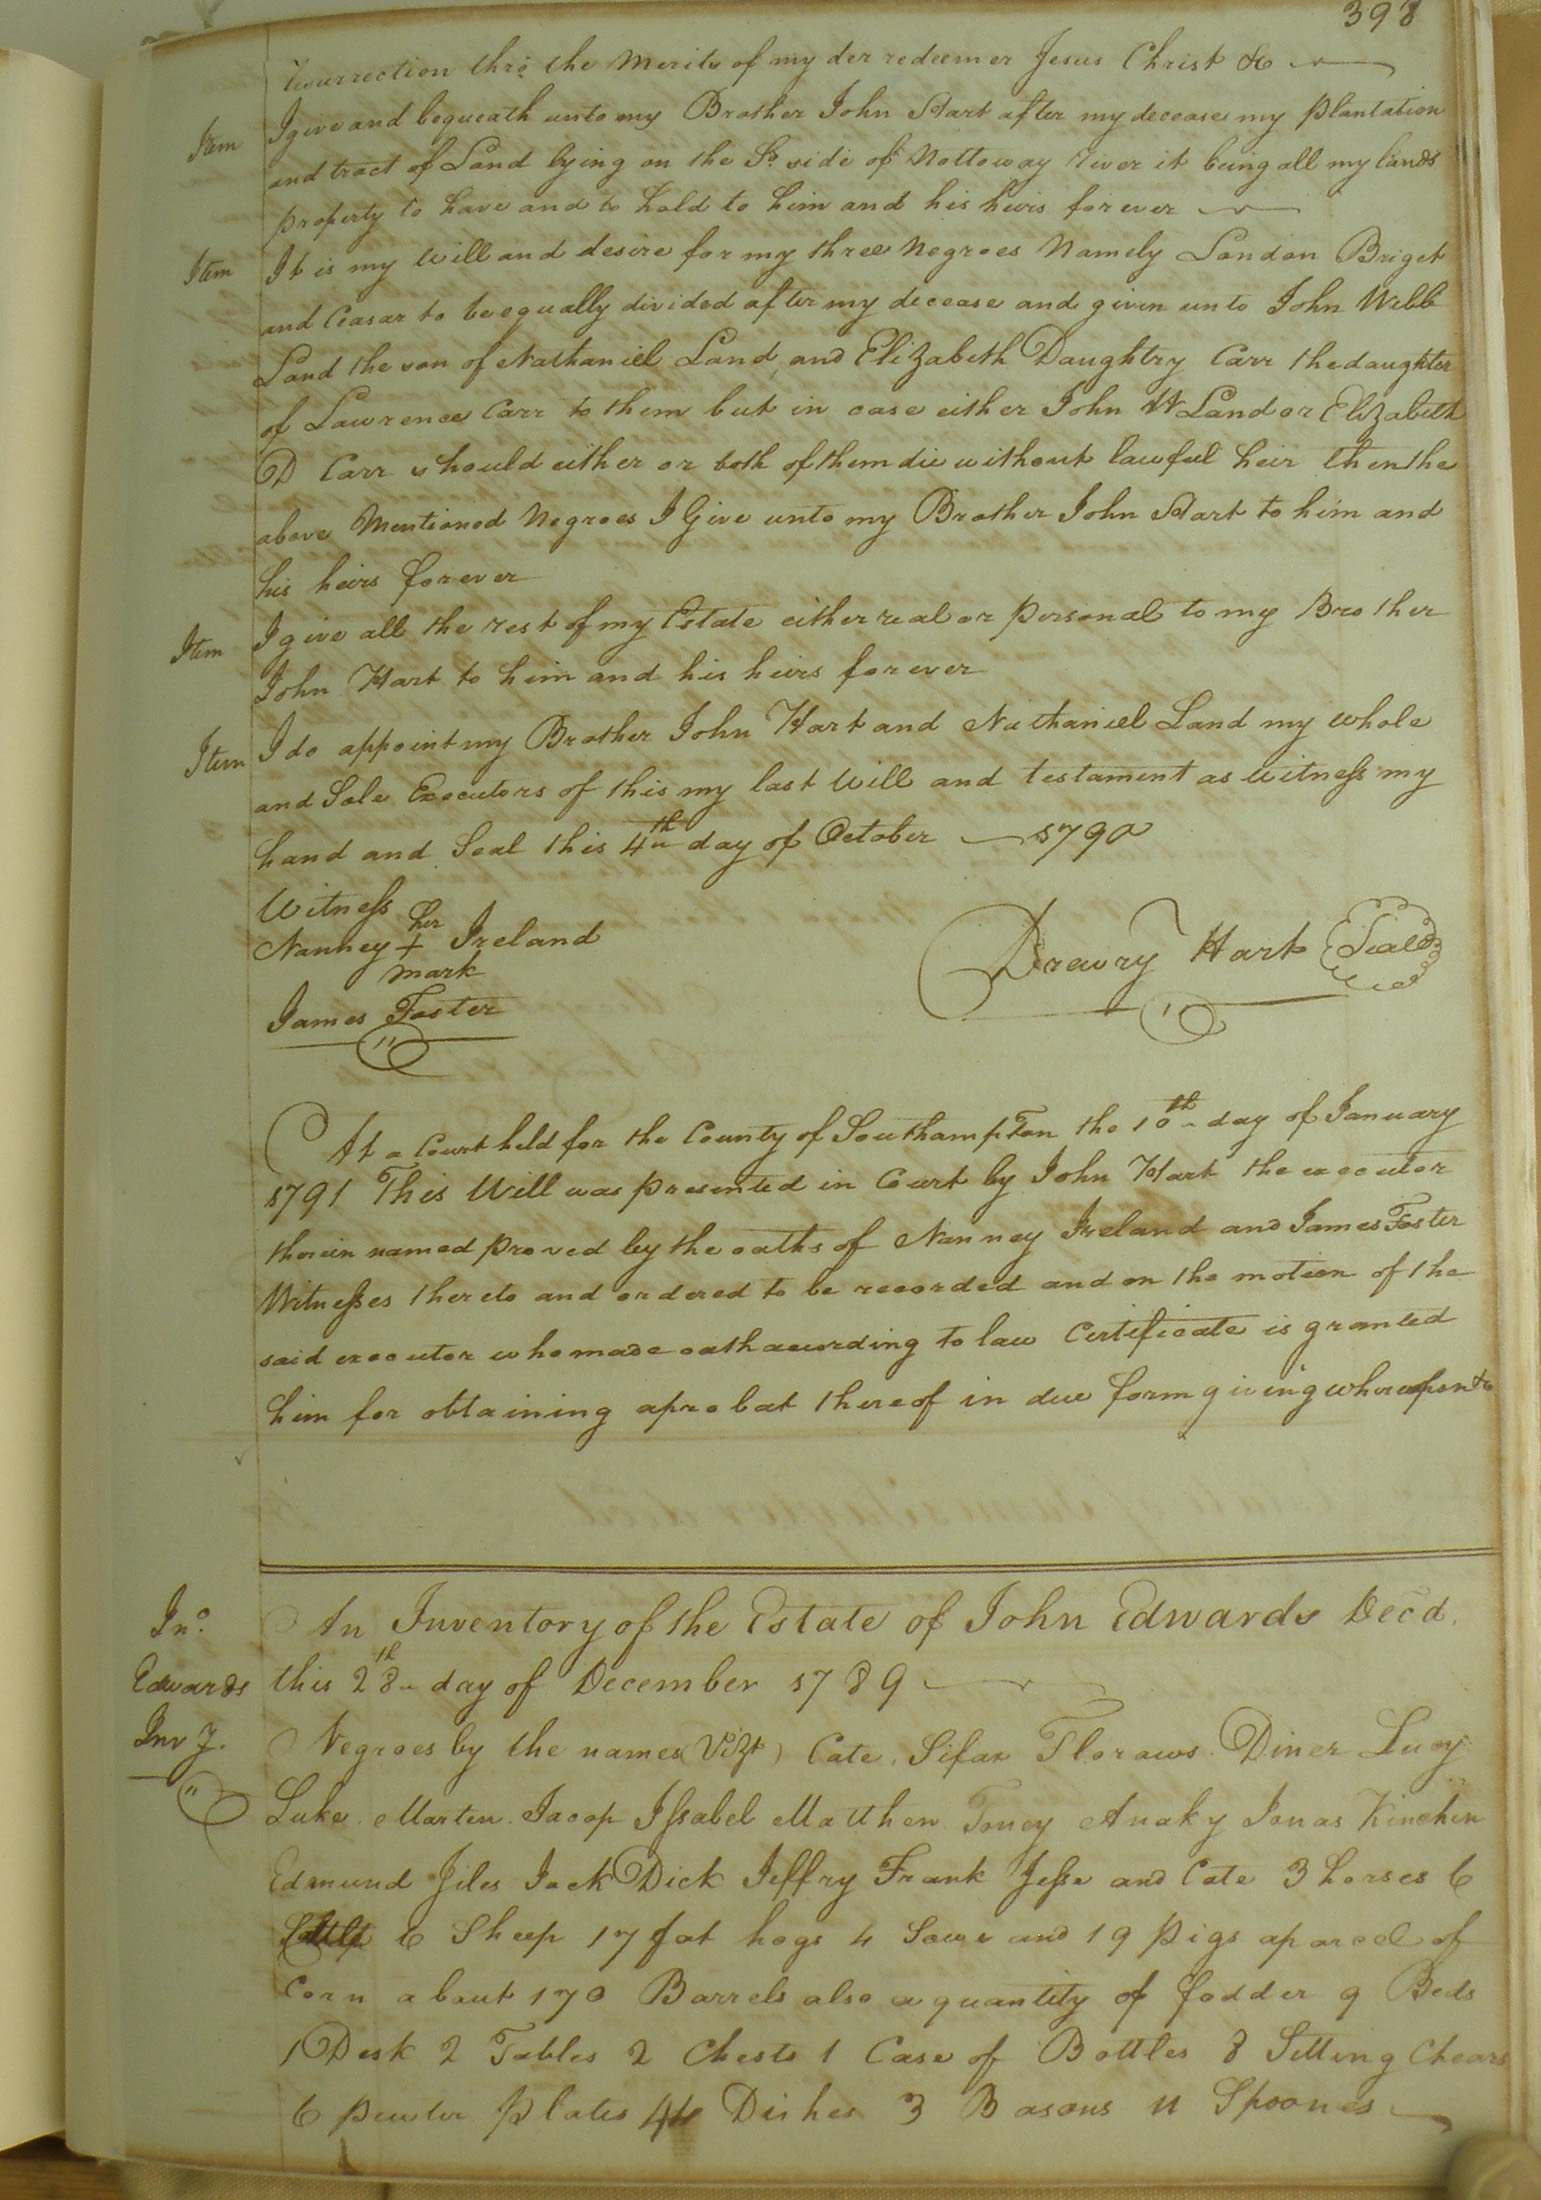 398
resurrection thro the Merits of my der redeemer Jesus Christ &c
Item I give and bequeath unto my Brother John Hart after my decease my plantation
and tract of Land lying on the So. side of Nottoway river it being all my lands
property to have and to hold to him and his heirs forever
Item It is my will and desire for my three Negroes Namely London Briget
and Ceasar to be equally divided after my decease and given unto John Webb
Land the son of Nathaniel Land, and Elizabeth Daughtry Carr the daughter
of Lawrence Carr to them but in case either John W Land or Elizabeth
D Carr should either or both of them die without lawful heir then the
above Mentioned Negroes I Give unto my Brother John Hart to him and
his heirs forever
Item I give all the rest of my Estate either real or personal to my Brother
John Hart to him and his heirs forever
Item I do appoint my Brother John Hart and Nathaniel Land my whole
and Sole Executors of this my last Will and testament as witness my
hand and Seal this 4th day of October 1790
Witness
Nanney her + mark Ireland
James Foster
Drewry Hart Seal
At a Court held for the County of Southampton the 10th day of January
1791 This Will was presented in Court by John Hart the executor
therein named proved by the oaths of Nanney Ireland and James Foster
Witnesses thereto and ordered to be recorded and on the motion of the
said executor who made oath according to law Certificate is granted
him for obtaining a probat thereof in due form giving whereupon &c
Jno. Edwards Invy.
An Inventory of the Estate of John Edwards Decd.
this 28th day of December 1789
Negroes by the names (Vizt) Cate, Sifax Floraws. Diner Lucy
Luke. Marten. Jacop Issabel Matthew Toney Anaky Jonas Kinchen
Edmund Jiles Jack Dick Jeffry Frank Jesse and Cate 3 horses 6
Cattle 6 Sheep 17 fat hogs 4 Sows and 19 pigs a parcel of
Corn about 170 Barrels also a quantity of fodder 9 Beds
1 Desk 2 Tables 2 Chests 1 Case of Bottles 8 Setting Chears
6 pewter plates 4 Dishes 3 Basons 11 Spoones